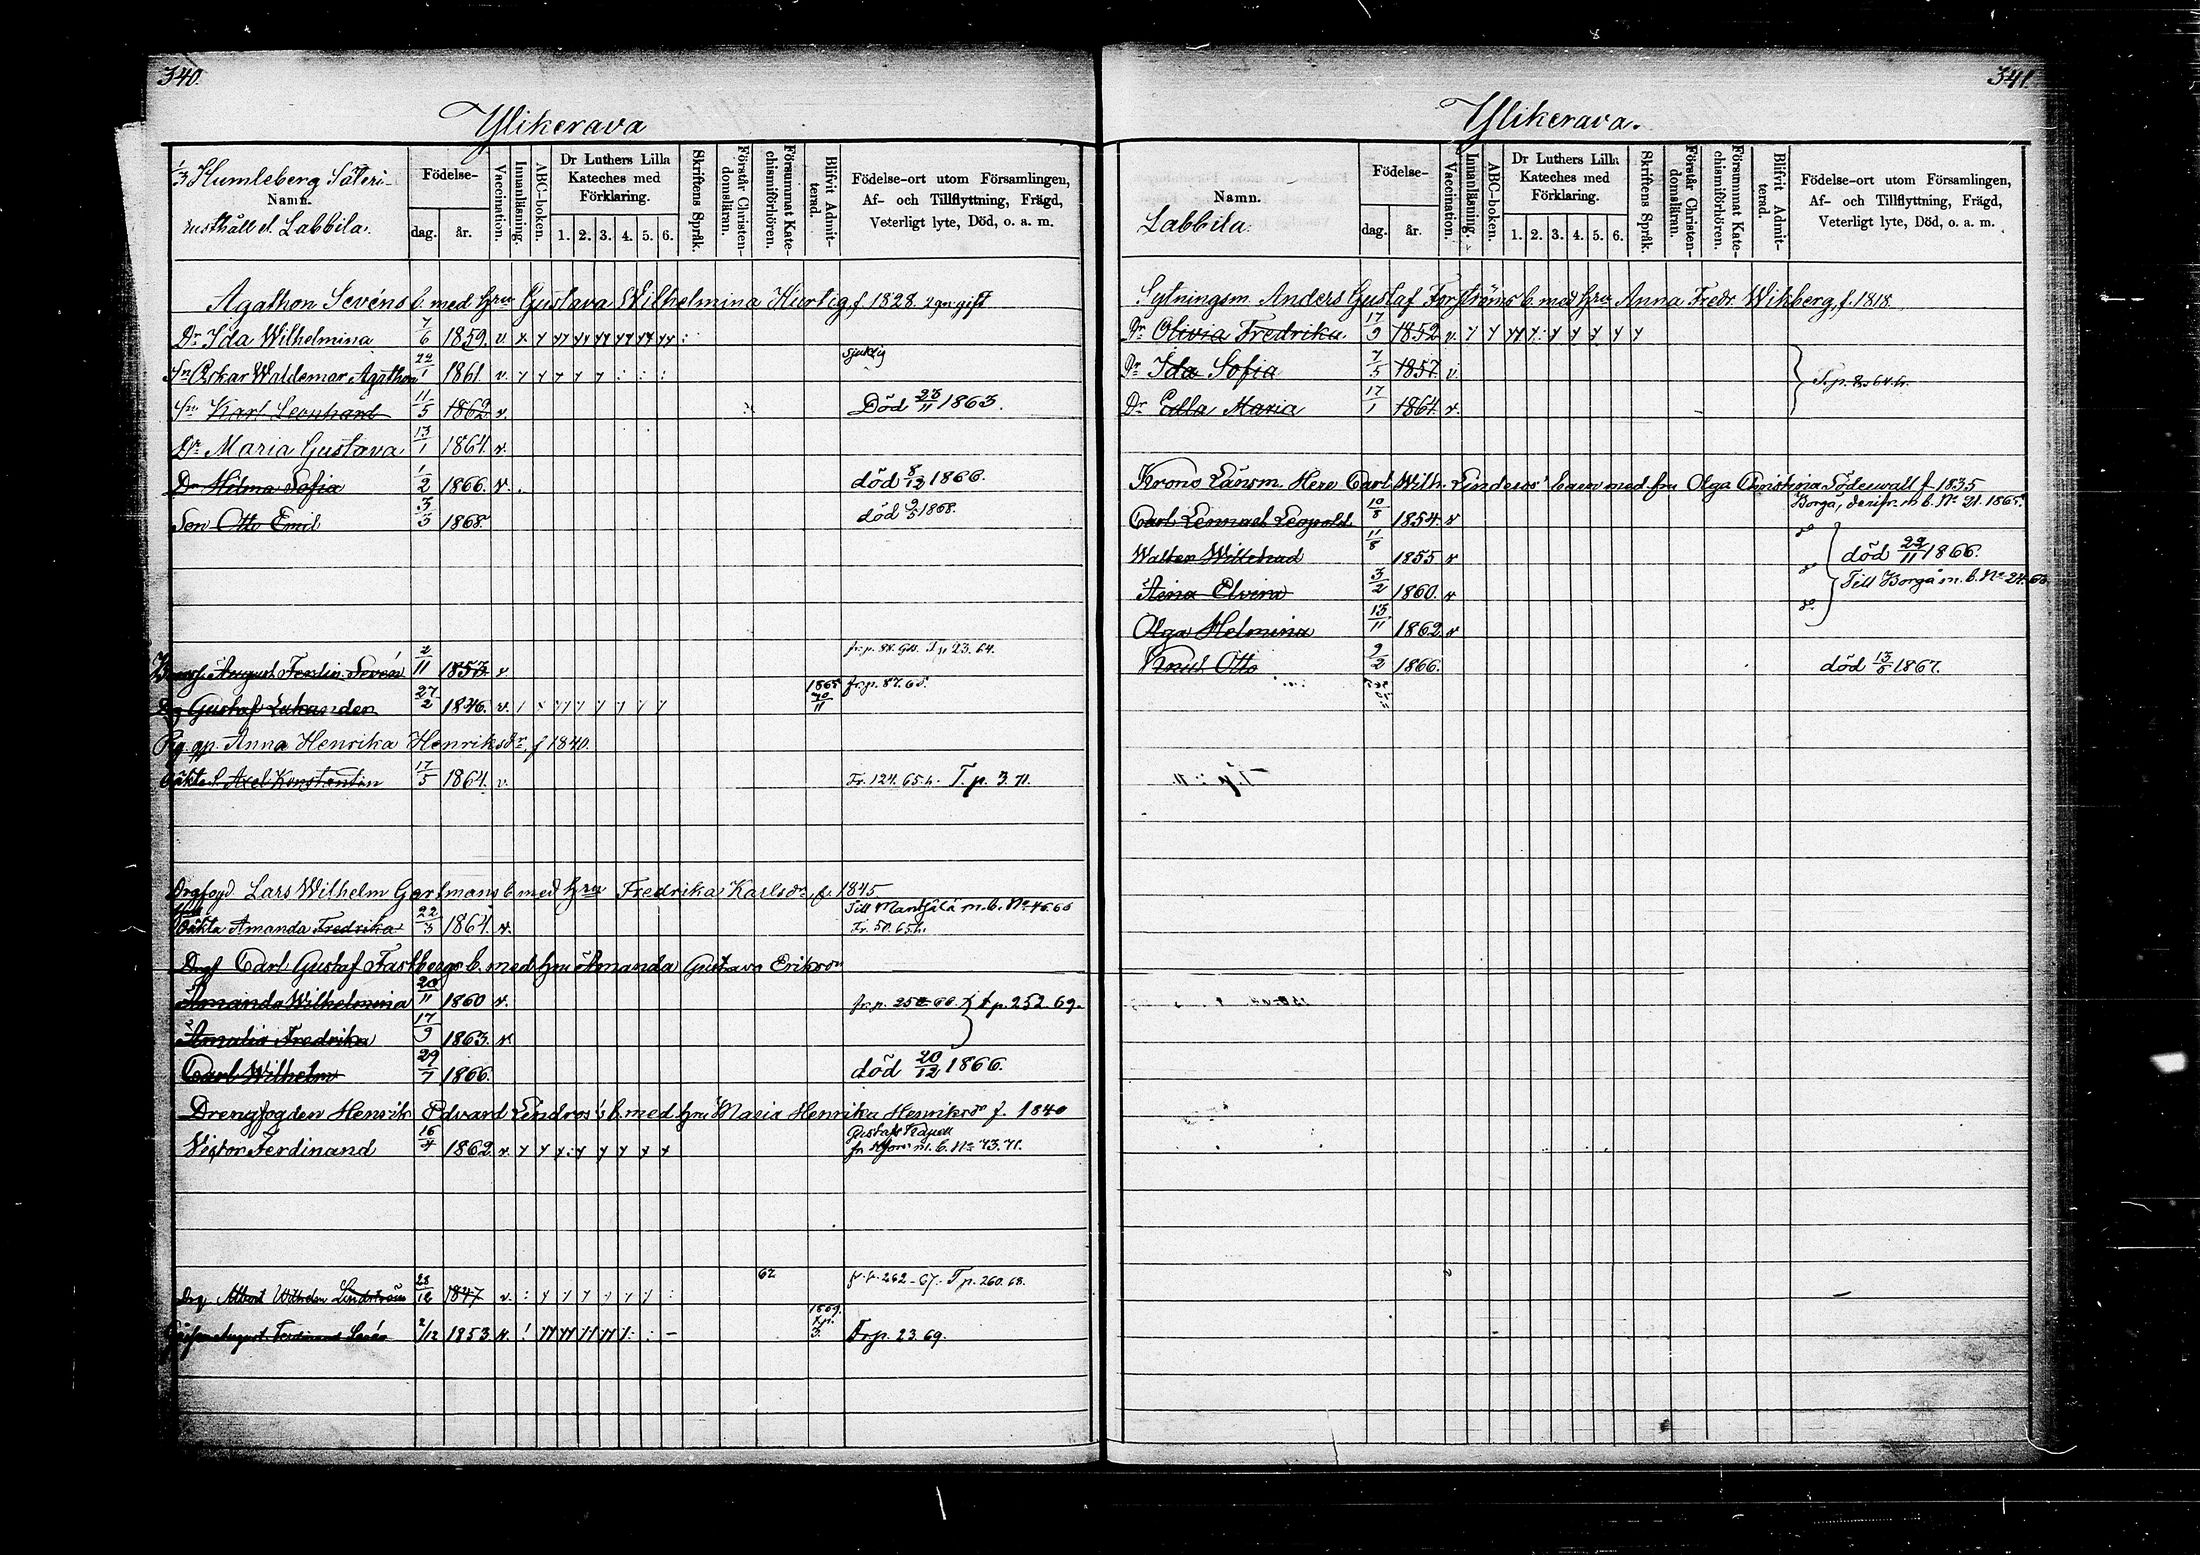 340.
Ylikerava
1/3 Humleberg Säteri-
Namn.
rusthåll el. Labbila.
Födelse-
dag. år.
Vaccination.
Innanläsning.
ABC-boken.
Dr Luthers Lilla
Kateches med
Förklaring.
1. 2. 3. 4. 5. 6.
Skriftens Språk.
Förstår Christen-
domsläran.
Försummat Kate-
chismiförhören.
Blifvit Admit-
terad.
Födelse-ort utom Församlingen,
Af- och Tillflyttning, Frägd,
Veterligt lyte, Död, o. a. m.
Agathon Sevéns b. med hru Gustava Wilhelmina Hurtig, f 1828 2 gen gift
Dr Ida Wilhelmina 7/6 1859. v.
Sn Oskar Waldemar Agathon 22/1 1861. v. sjuklig
Sn Karl Leonhard 11/5 1862 v. Död 23/11 1863.
Dr Maria Gustava 13/1 1864. v.
Dr Hilma Sofia 1/2 1866. v. död 8/12 1866.
Son Otto Emil 3/3 1868. död 9/5 1868.
August Ferdin. Sevén 2/11 1853 v fr. p. 88. T p 23. 64.
Drg Gustaf Lukander 27/2 1846. v. 1865 fr. p. 87. 65.
Pig. gp. Anna Henrika Henriksdr, f 1840.
Oäkta S. Axel Konstantin 17/5 1864. v. Fr. 124. 65. h. T. p. 3. 71.
Drgfogd. Lars Wilhelm Gartmans b. med hru Fredrika Karlsdr, f. 1845
Till Mäntsälä m. b. No 46. 66
Oäkta Amanda Fredrika 22/3 1864. v. Fr. 50. 65. h.
Drgf Carl Gustaf Fastbergs b. med hru Amanda Gustava Eriksdr
Amanda Wilhelmina 20/11 1860 v. fr. p. 252. 66. } t p. 252. 69.
Amalia Fredrika 17/9 1863. v.
Carl Wilhelm 29/7 1866. död 20/12 1866.
Drengfogden Henrik Edvard Lindros's b. med hru Maria Henrika Henriksdr f. 1840
Victor Ferdinand 16/4 1862. v. fr Hfors m. b. No 73. 71.
Drg Albert Wilhelm Lindström 28/12 1847 v. 67 fr. p. 262-67. T p. 260. 68.
August Ferdinand Sevén 2/12 1853 v. 1869. Fr p. 23. 69.
341.
Ylikerava.
Namn.
Labbila.
Födelse-
dag. år.
Vaccination.
Innanläsning.
ABC-boken.
Dr Luthers Lilla
Kateches med
Förklaring.
1. 2. 3. 4. 5. 6.
Skriftens Språk.
Förstår Christen-
domsläran.
Försummat Kate-
chismiförhören.
Blifvit Admit-
terad.
Födelse-ort utom Församlingen,
Af- och Tillflyttning, Frägd,
Veterligt lyte, Död, o. a. m.
Sytningsm. Anders Gustaf Forströms b. med hru Anna Fredr. Wikberg, f. 1818.
Dr Olivia Fredrika 17/9 1852 v.
Dr Ida Sofia 7/5 1857. v. } T. p. 8. 64. h.
Dr Edla Maria 17/1 1864. v.
Krono Länsm. Herr Carl Wilh. Linderos' barn med fru Olga Christina Söderwall f 1835
Borgå, derifr. m. b. No 21. 1865.
Carl Lennart Leopold 10/8 1854. v
Walter Willehad 11/8 1855 v död 22/11 1866.
Aina Elvira 3/2 1860. v Till Borgå m. b. No 24. 68.
Olga Helmina 13/11 1862 v
Knut Otto 9/2 1866. död 13/5 1867.